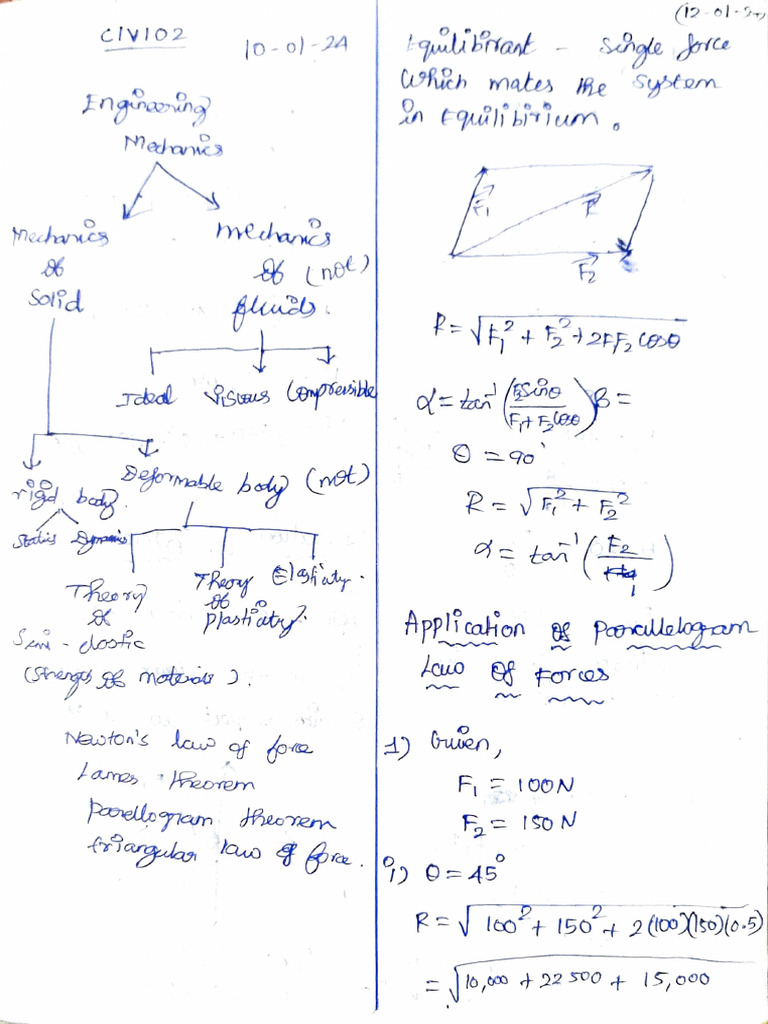 CIV102
10-01-24
Engineering
Mechanics
Mechanics
of
Solid
Mechanics
of (not)
fluids.
Ideal Viscous Compressible
rigid body.
Deformable body (not)
Statics Dynamics
Theory
of
Semi-elastic
(Strength of materials).
Theory
of
plasticity.
Elasticity.
Newton's law of force
Lames theorem
Parellogram theorem
triangular law of force.
(12-01-24)
Equilibirant - Single force
Which makes the system
in Equilibirium.
F₁
R
F₂
R = √F₁² + F₂² + 2FF₂ cosθ
α = tan⁻¹ (F₂sinθ / F₁+F₂cosθ) β =
θ = 90°
R = √F₁² + F₂²
α = tan⁻¹ (F₂ / 1)
Application of Parallelogram
Law of Forces
1) Given,
F₁ = 100N
F₂ = 150N
i) θ = 45°
R = √100² + 150² + 2(100)(150)(0.5)
= √10,000 + 22500 + 15,000